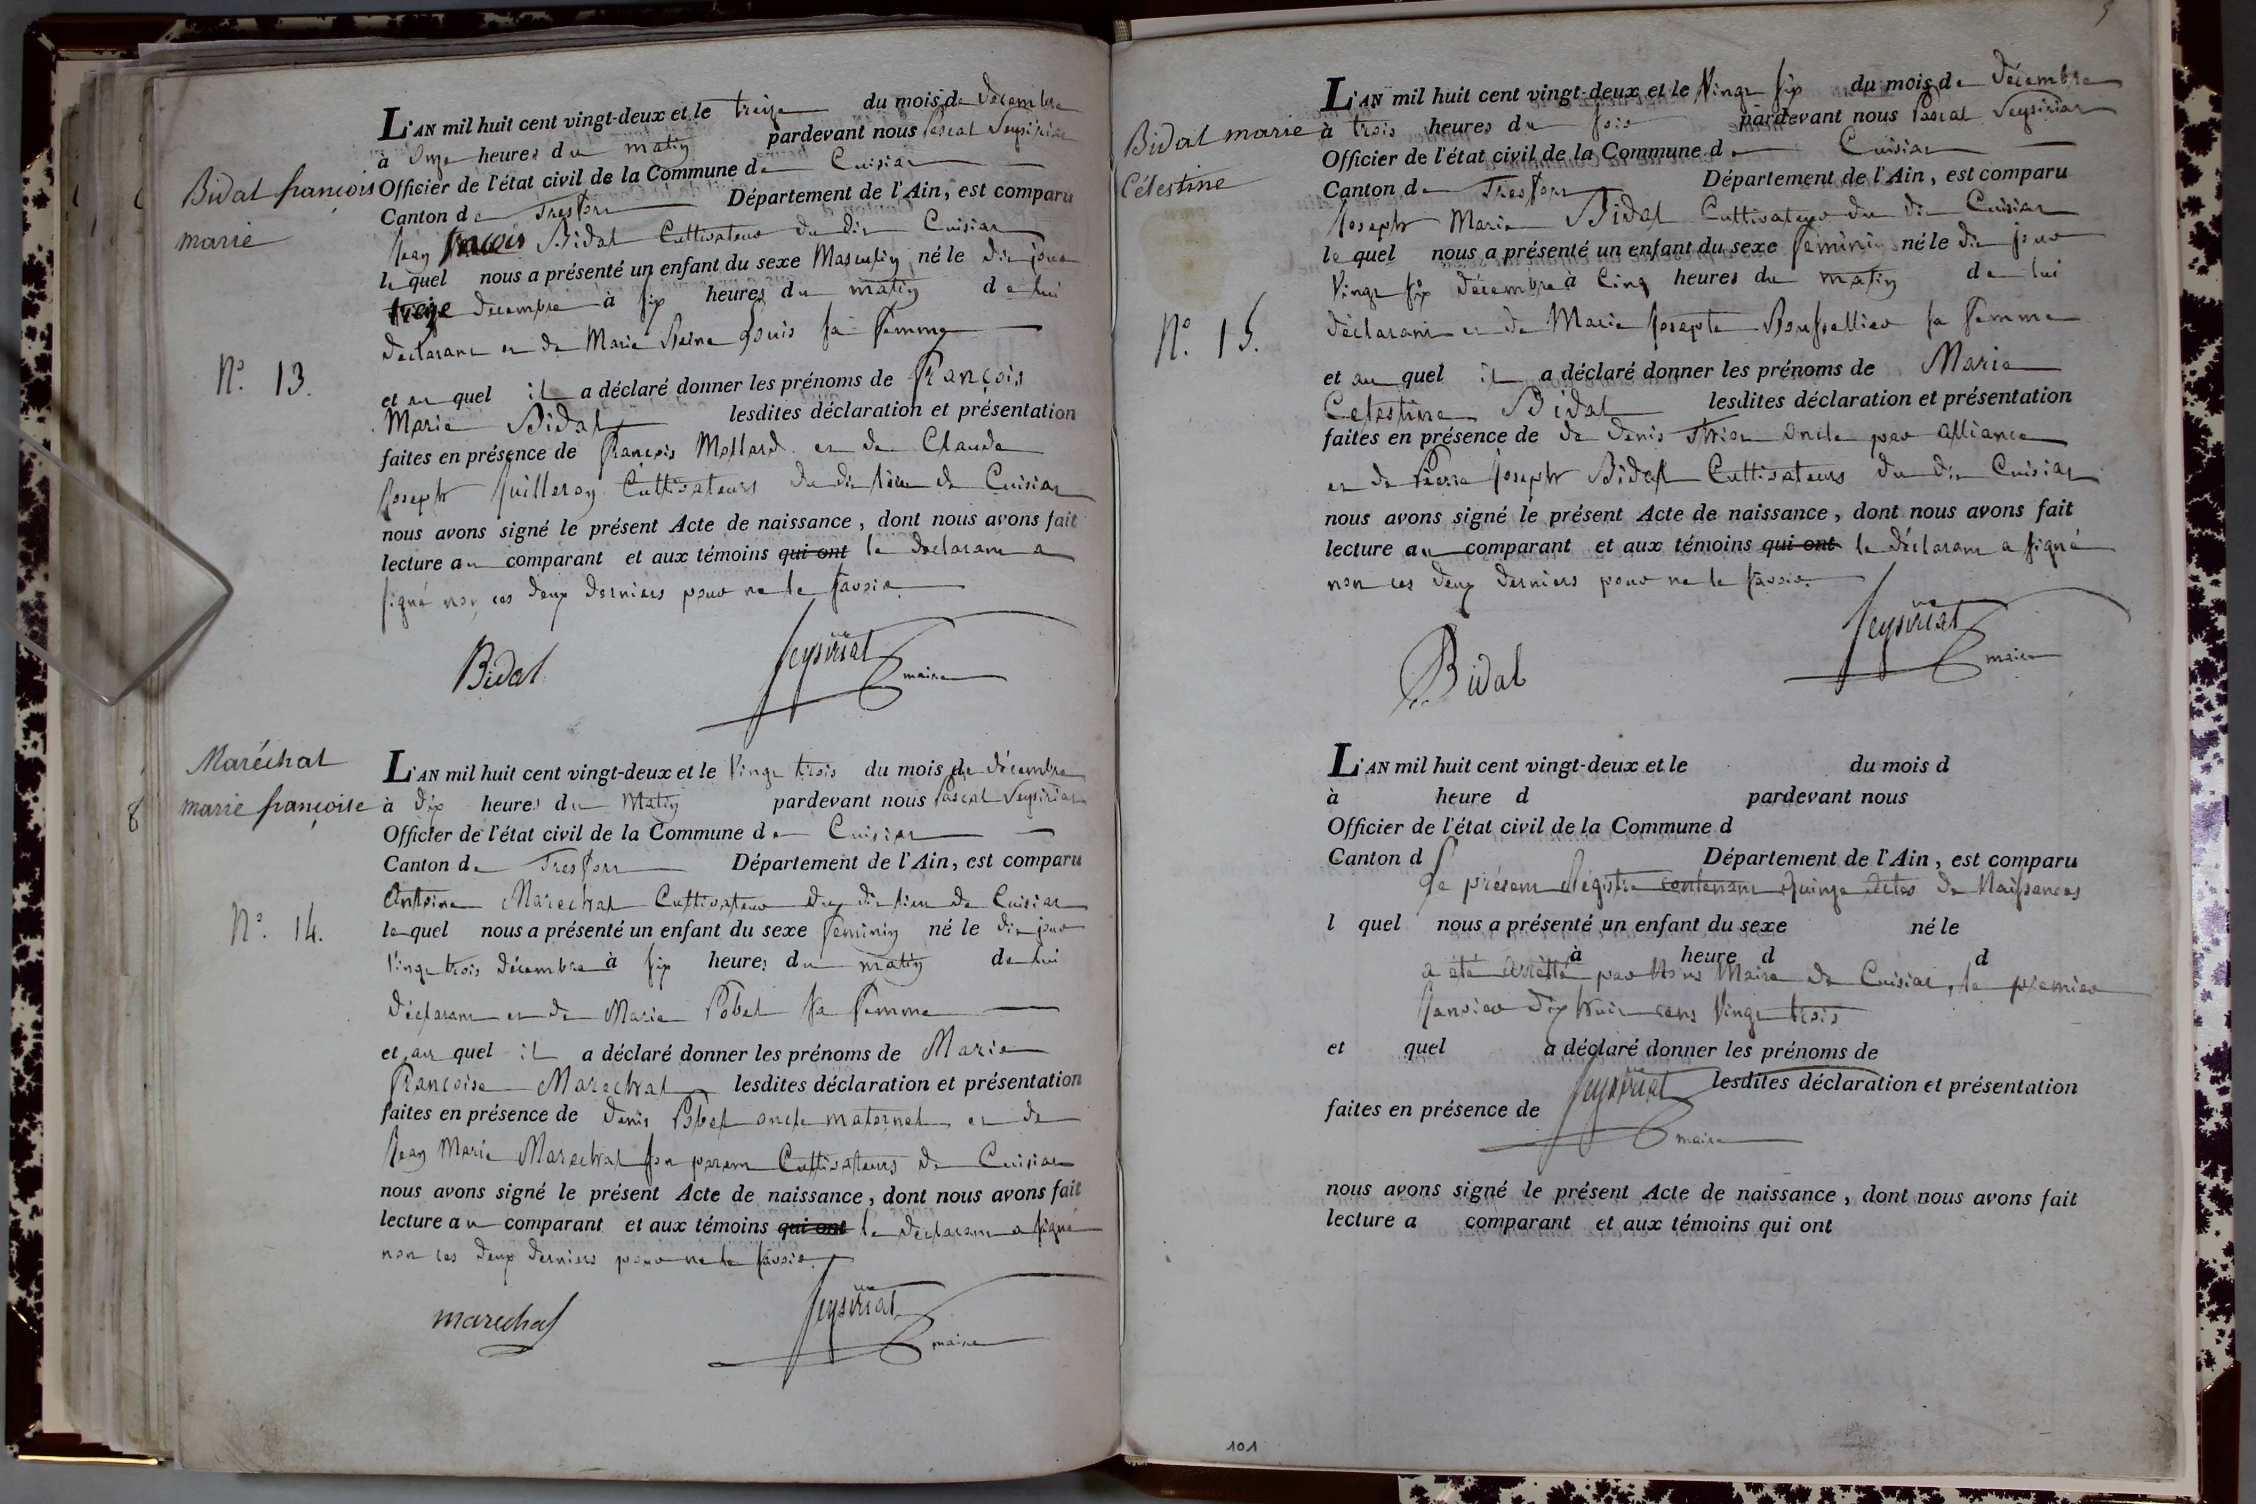 Bidat françois
marie
N.° 13.
L'AN mil huit cent vingt-deux et le treize du mois de décembre
à onze heures du matin pardevant nous Pascal Seysiriat
Officier de l'état civil de la Commune de Cuisiat
Canton de Tresfort Département de l'Ain, est comparu
Jean françois Bidat Cultivateur du dit Cuisiat
le quel nous a présenté un enfant du sexe Masculin né le dit jour
treize décembre à six heures du matin de lui
déclarant et de Marie Reine Louis sa femme
et au quel il a déclaré donner les prénoms de François
Marie Bidat lesdites déclaration et présentation
faites en présence de François Mollard et de Claude
Joseph Juilleron Cultivateurs du dit lieu de Cuisiat
nous avons signé le présent Acte de naissance, dont nous avons fait
lecture au comparant et aux témoins qui ont le déclarant a
signé non ces deux derniers pour ne le savoir.
Bidat Seysiriat
maire
Maréchat
marie françoise
8
N.° 14.
L'AN mil huit cent vingt-deux et le vingt trois du mois de décembre
à dix heures du Matin pardevant nous Pascal Seysiriat
Officier de l'état civil de la Commune de Cuisiat
Canton de Tresfort Département de l'Ain, est comparu
Antoine Marechat Cultivateur du dit lieu de Cuisiat
le quel nous a présenté un enfant du sexe féminin né le dit jour
vingt trois décembre à six heures du matin de lui
déclarant et de Marie Pobel sa femme
et au quel il a déclaré donner les prénoms de Marie
Françoise Marechat lesdites déclaration et présentation
faites en présence de denis Pobel oncle maternel et de
Jean Marie Marechat son parent Cultivateurs de Cuisiat
nous avons signé le présent Acte de naissance, dont nous avons fait
lecture au comparant et aux témoins qui ont le déclarant a signé
non ces deux derniers pour ne le savoir.
marechal Seysiriat
maire
5
Bidat marie
Célestine
N.° 15.
L'AN mil huit cent vingt-deux et le vingt six du mois de décembre
à trois heures du soir pardevant nous Pascal Seysiriat
Officier de l'état civil de la Commune de Cuisiat
Canton de Tresfort Département de l'Ain, est comparu
Joseph Marie Bidat Cultivateur du dit Cuisiat
le quel nous a présenté un enfant du sexe féminin né le dit jour
vingt six décembre à cinq heures du matin de lui
déclarant et de Marie Josepte Roussellier sa femme
et au quel il a déclaré donner les prénoms de Marie
Celestine Bidat lesdites déclaration et présentation
faites en présence de de denis oncle par alliance
et de Pierre Joseph Bidat Cultivateurs du dit Cuisiat
nous avons signé le présent Acte de naissance, dont nous avons fait
lecture au comparant et aux témoins qui ont le déclarant a signé
non ces deux derniers pour ne le savoir.
Bidat Seysiriat
maire
L'AN mil huit cent vingt-deux et le du mois d
à heure d pardevant nous
Officier de l'état civil de la Commune d
Canton d Département de l'Ain, est comparu
Le présent Régistre contenant quinze actes de Naissances
l quel nous a présenté un enfant du sexe né le
à heure d d
a été arrêté par Nous Maire de Cuisiat, le premier
Janvier dix huit cent vingt trois
et quel a déclaré donner les prénoms de
Seysiriat lesdites déclaration et présentation
faites en présence de
maire
nous avons signé le présent Acte de naissance, dont nous avons fait
lecture a comparant et aux témoins qui ont
101